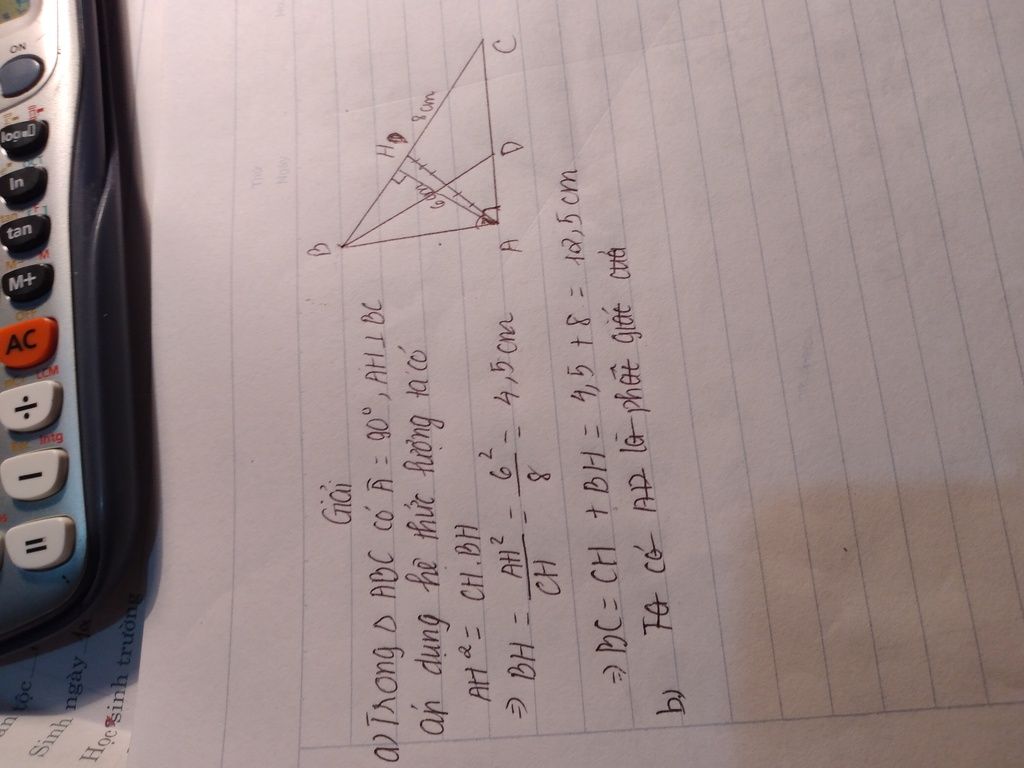 Giải
a) Trong Δ ABC có Â = 90°, AH ⊥ BC
áp dụng hệ thức lượng ta có
AH² = CH.BH
⇒ BH = AH²/CH = 6²/8 = 4,5 cm
⇒ BC = CH + BH = 4,5 + 8 = 12,5 cm
b) Ta có AD là phân giác của
B
H
D
8 cm
C
6 cm
D
A
ON
ln
tan
M+
AC
÷
−
=
LCM
Intg
tộc
Sinh ngày
Học sinh trường